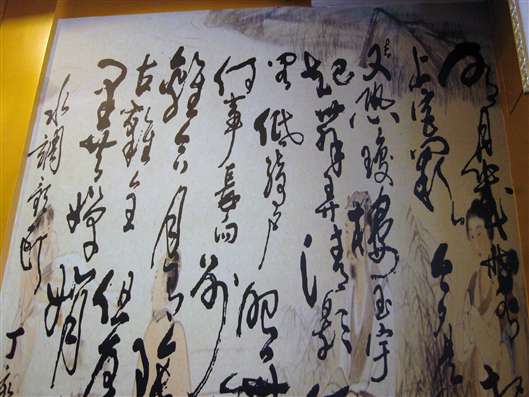 明月幾時有
上宮闕 今夕是
又恐瓊樓玉宇
起舞弄清影
低綺戶 照無
何事長向別
離合 月有陰
古難全 但
里共嬋娟
水調歌頭 丁亥